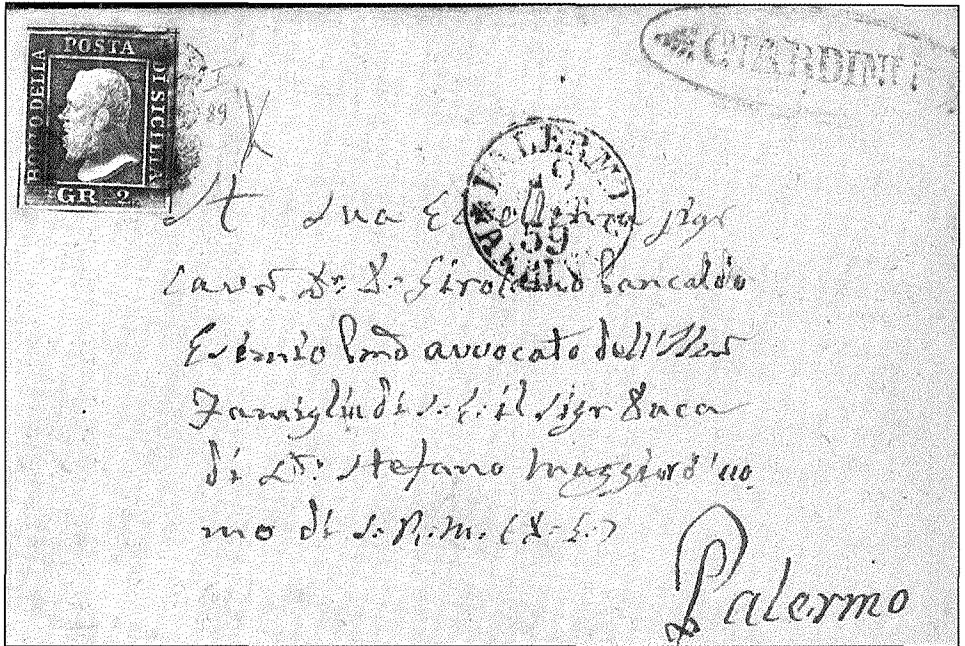 POSTA
BOLLO DELLA
DI SICILIA
GR 2
89
GIARDINI
PALERMO
9
59
A Sua Eccellenza Sigr
Cavre Dn Dn Girolamo Pancaldo
Esimio avvocato dell'
Famiglia di S. E. il Sigr Duca
di Sto Stefano Maggiord'uo
mo di S. R. M. (D. G.)
Palermo